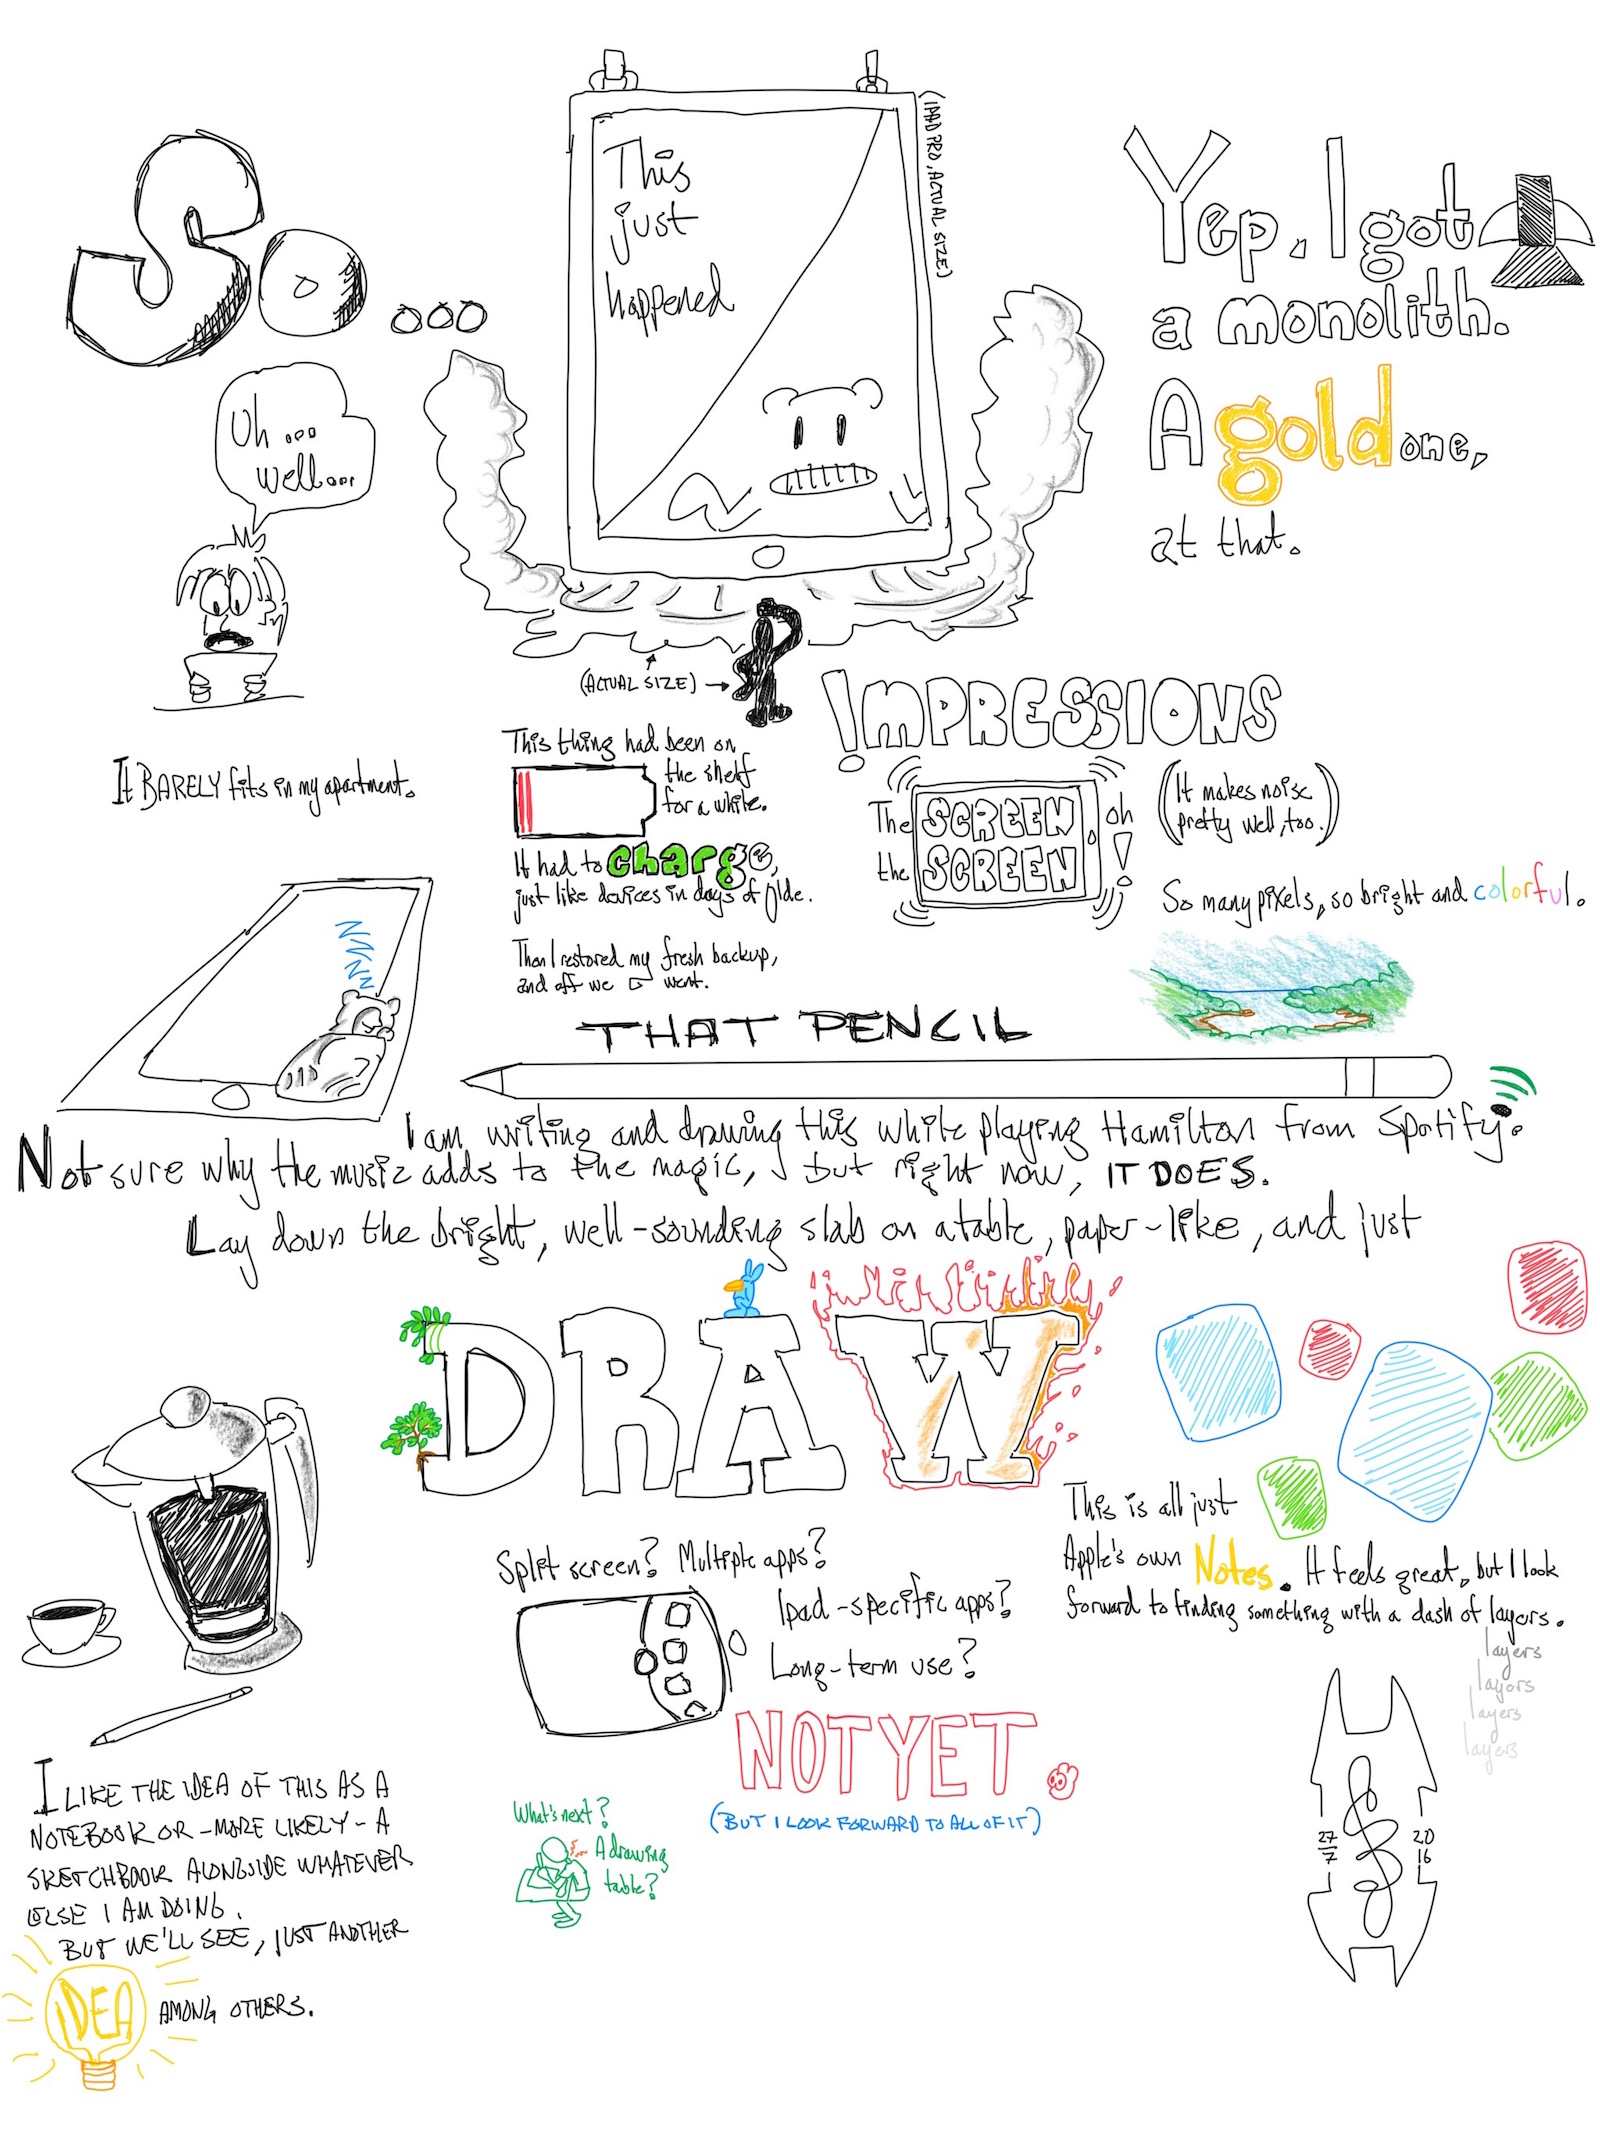 So...
This
just
happened
(IPAD PRO, ACTUAL SIZE)
Yep, I got
a monolith.
A gold one,
at that.
Uh...
well...
(ACTUAL SIZE)
It BARELY fits in my apartment.
This thing had been on
the shelf
for a while.
It had to charge,
just like devices in days of olde.
Then I restored my fresh backup,
and off we went.
IMPRESSIONS
The SCREEN, oh
the SCREEN!
(It makes noise
pretty well, too.)
So many pixels, so bright and colorful.
THAT PENCIL
I am writing and drawing this while playing Hamilton from Spotify.
Not sure why the music adds to the magic, but right now, IT DOES.
Lay down the bright, well-sounding slab on a table, paper-like, and just
DRAW
This is all just
Apple's own Notes. It feels great, but I look
forward to finding something with a dash of layers.
layers
layers
layers
layers
Split screen? Multiple apps?
Ipad-specific apps?
Long-term use?
NOT YET.
(BUT I LOOK FORWARD TO ALL OF IT)
What's next?
A drawing
table?
I LIKE THE IDEA OF THIS AS A
NOTEBOOK OR -MORE LIKELY- A
SKETCHBOOK ALONGSIDE WHATEVER
ELSE I AM DOING.
BUT WE'LL SEE, JUST ANOTHER
IDEA AMONG OTHERS.
27
7
20
16